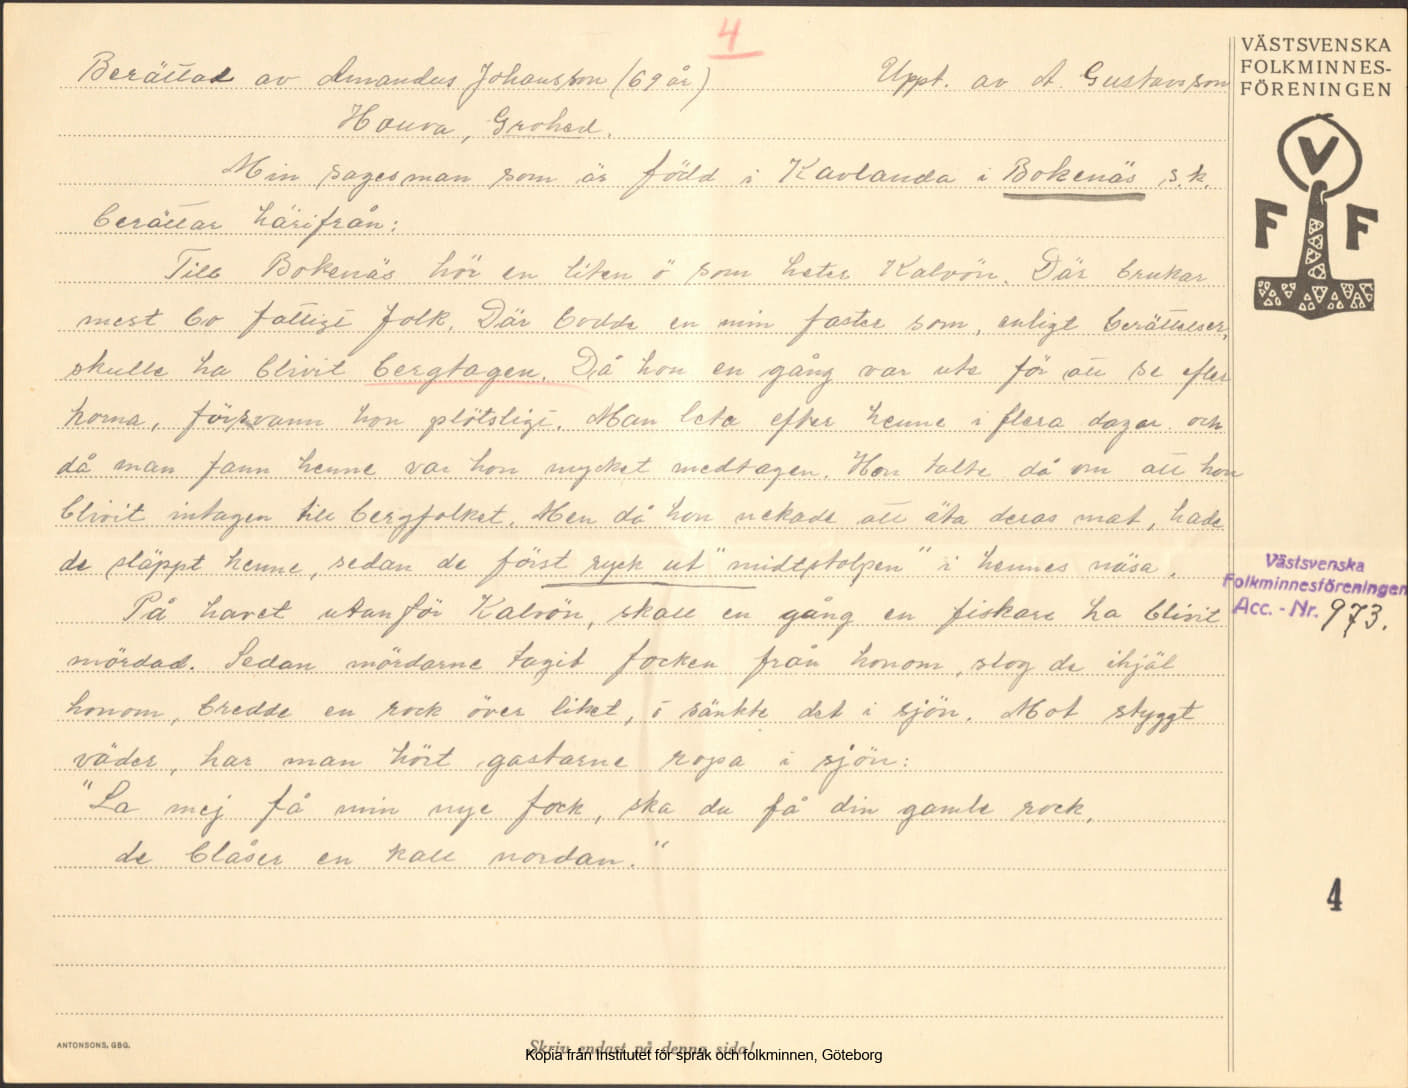 4
Berättad av Amandus Johansson (69 år) Uppt. av A Gustavsson
Hauva, Grohed.
Min sagesman som är född i Kavlanda i Bokenäs s.k.
berättar härifrån:
Till Bokenäs hör en liten ö som heter Kalvön. Där brukar
mest bo fattigt folk. Där bodde en min faster som, enligt berättelser,
skulle ha blivit bergtagen. Då hon en gång var ute för att se efter
korna, försvann hon plötsligt. Man leta efter henne i flera dagar och
då man fann henne var hon mycket medtagen. Hon talte då om att hon
blivit intagen till bergfolket. Men då hon nekade att äta deras mat, hade
de släppt henne, sedan de först ryck ut "midtstolpen" i hennes näsa.
På havet utanför Kalvön, skall en gång en fiskare ha blivit
mördad. Sedan mördarne tagit focken från honom, slog de ihjäl
honom, bredde en rock över liket, o sänkte det i sjön. Mot styggt
väder, har man hört gastarne ropa i sjön:
"La mej få min nye fock, ska du få din gamle rock,
de blåser en kall nordan."
VÄSTSVENSKA
FOLKMINNES-
FÖRENINGEN
V
F F
Västsvenska
Folkminnesföreningen
Acc. - Nr. 973.
4
ANTONSONS, GBG.
Skriv endast på denna sida!
Kopia från Institutet för språk och folkminnen, Göteborg